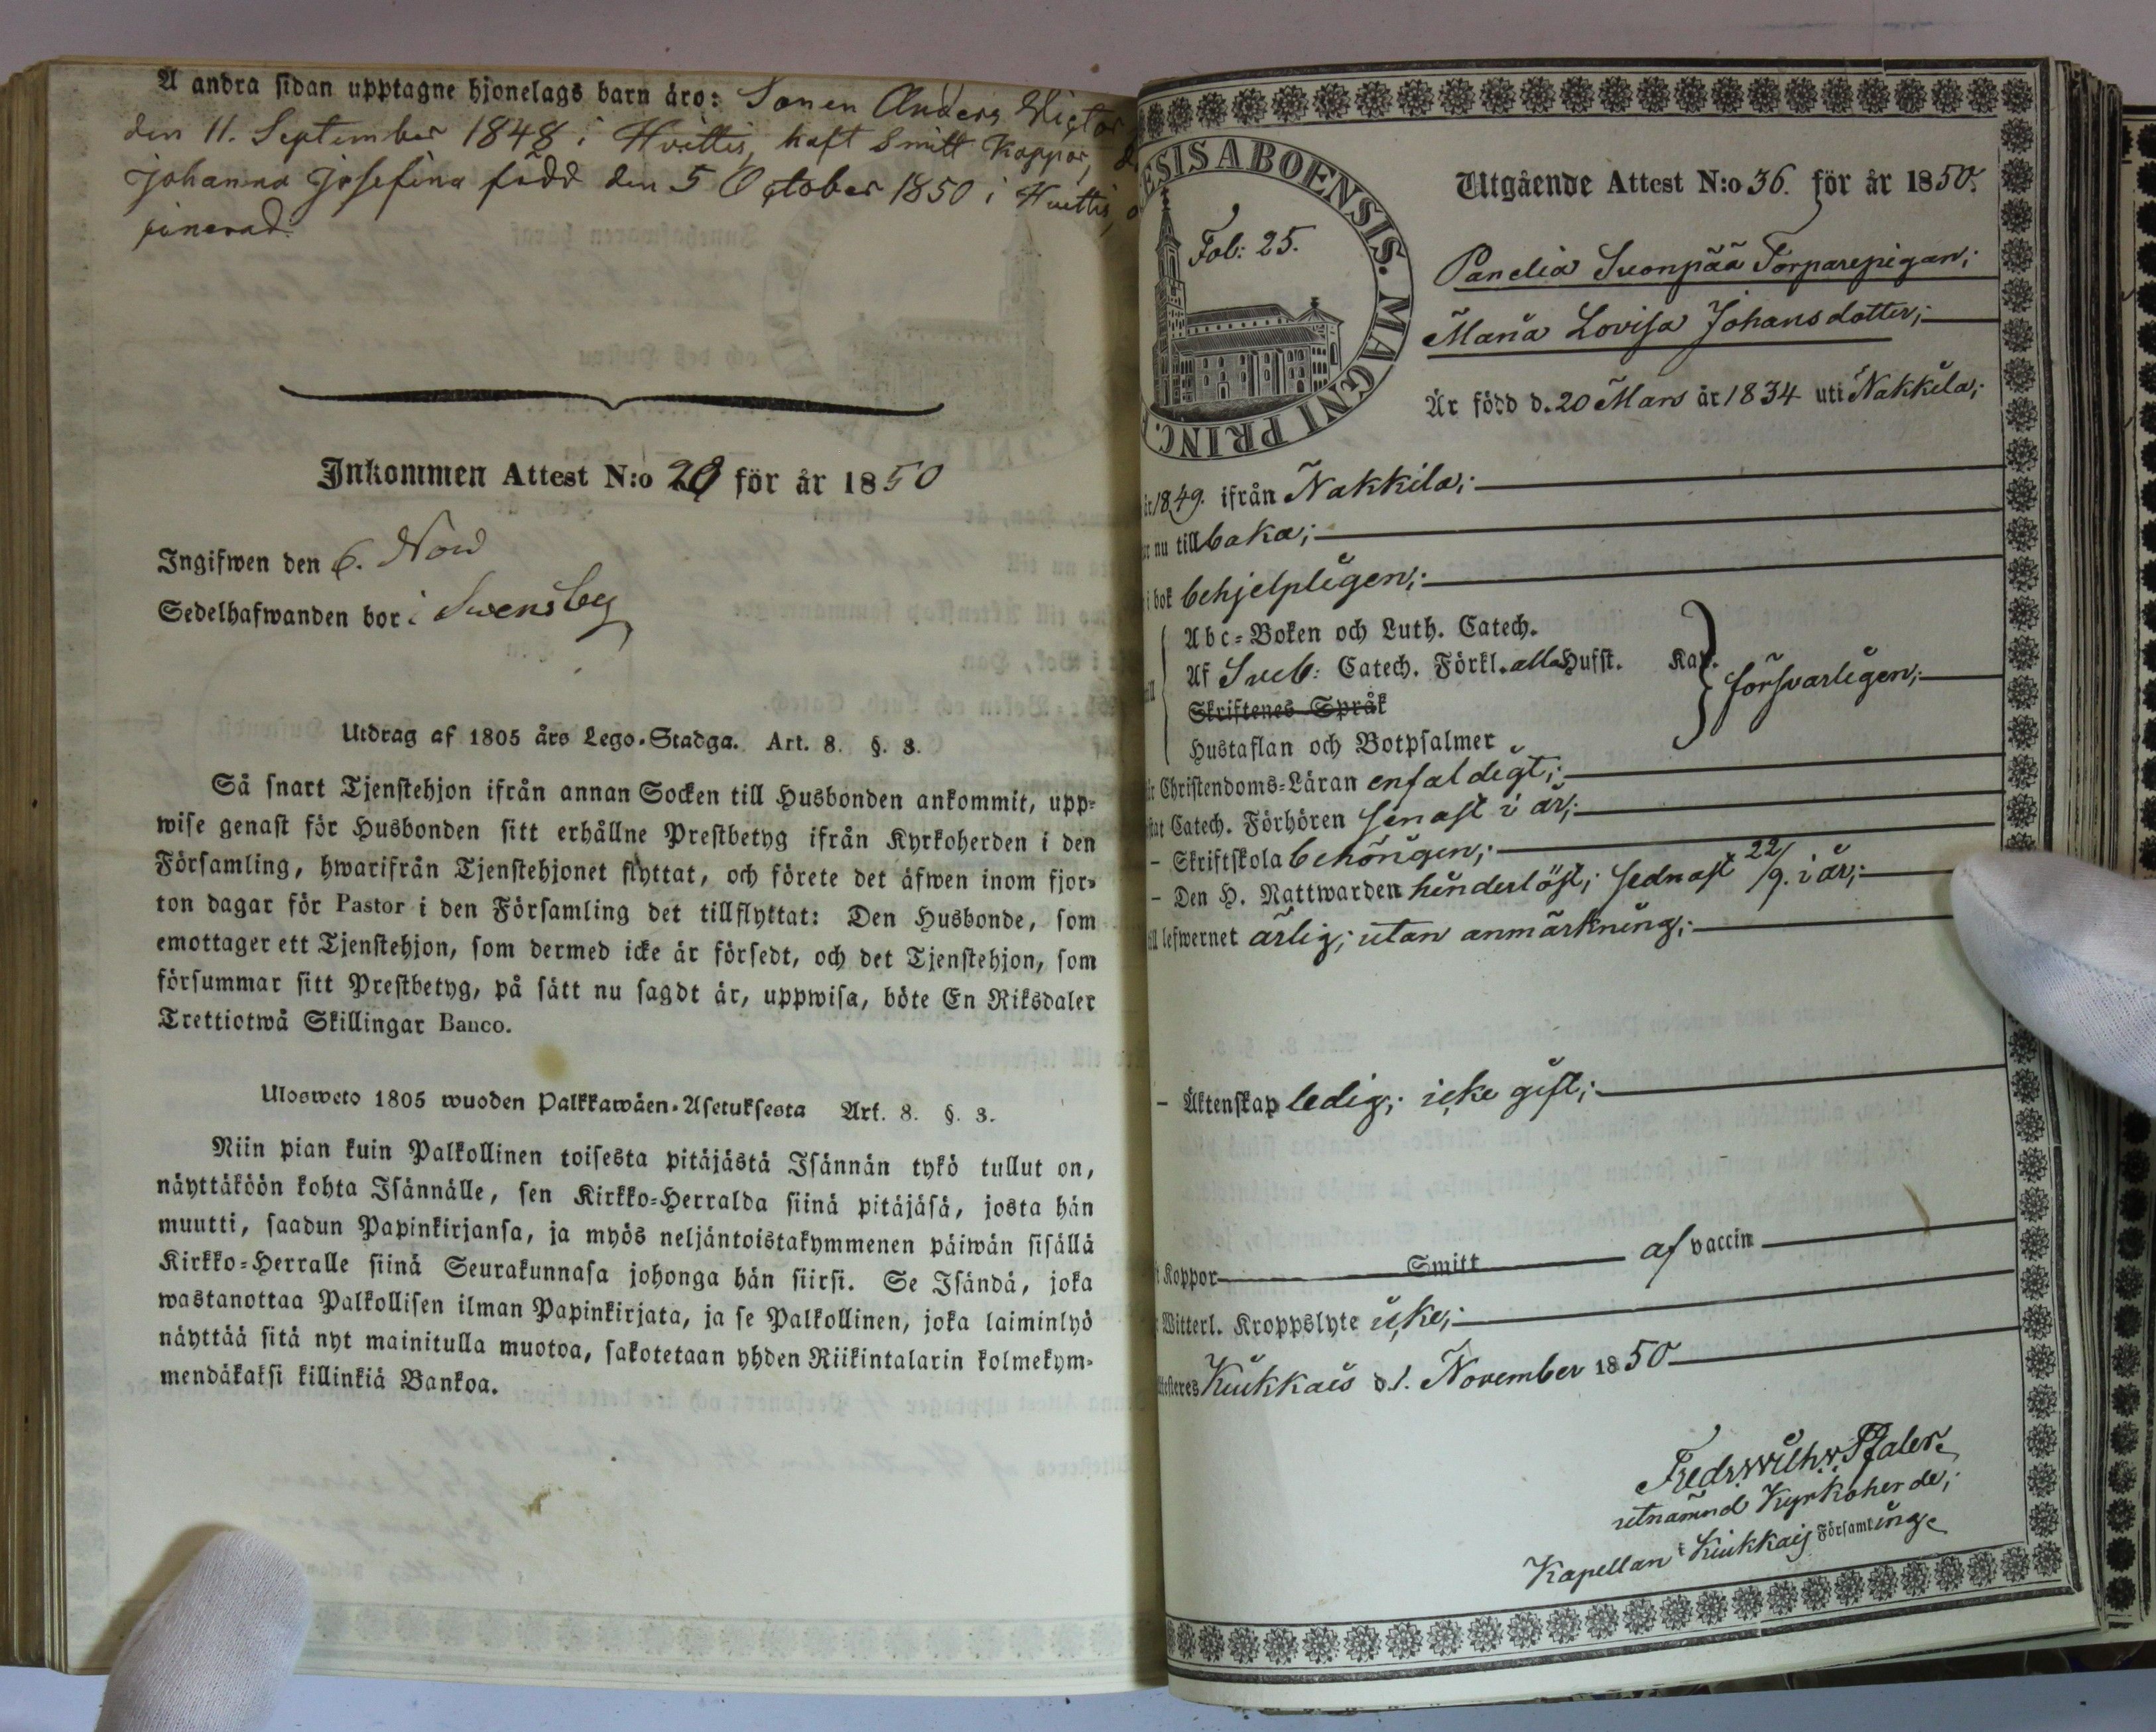 A andra sidan upptagne hjonelags barn äro: Sonen Anders Victor
den 11. September 1848 i Hvittis, haft Smitt Koppor,
Johanna Josefina född den 5 October 1850 i Hvittis,
Inkommen Attest N:o 29 för år 1850
Ingifwen den 6. Nov
Sedelhafwanden bor i Swensby
Utdrag af 1805 års Lego-Stadga. Art. 8. §. 3.
Så snart Tjenstehjon ifrån annan Socken till Husbonden ankommit, upp-
wise genast för Husbonden sitt erhållne Prestbetyg ifrån Kyrkoherden i den
Församling, hwarifrån Tjenstehjonet flyttat, och förete det äfwen inom fjor-
ton dagar för Pastor i den Församling det tillflyttat: Den Husbonde, som
emottager ett Tjenstehjon, som dermed icke är försedt, och det Tjenstehjon, som
försummar sitt Prestbetyg, på sätt nu sagdt är, uppwisa, böte En Riksdaler
Trettiotwå Skillingar Banco.
Ulosweto 1805 wuoden Palkkawäen-Asetuksesta Art. 8. §. 3.
Niin pian kuin Palkollinen toisesta pitäjästä Isännän tykö tullut on,
näyttäköön kohta Isännälle, sen Kirkko-Herralda siinä pitäjäsä, josta hän
muutti, saadun Papinkirjansa, ja myös neljäntoistakymmenen päiwän sisällä
Kirkko-Herralle siinä Seurakunnasa johonga hän siirsi. Se Isändä, joka
wastanottaa Palkollisen ilman Papinkirjata, ja se Palkollinen, joka laiminlyö
näyttää sitä nyt mainitulla muotoa, sakotetaan yhden Riikintalarin kolmekym-
mendäkaksi killinkiä Bankoa.
ESIS ABOENSIS. MAGNI PRINC.
Fol: 25.
Utgående Attest N:o 36. för år 1850.
Panelia Suonpää Torparepigan;
Maria Lovisa Johansdotter;
Är född d. 20 Mars år 1834 uti Nakkila;
år 1849. ifrån Nakkila;
nu tillbaka;
i bok behjelpligen;
Abc-Boken och Luth. Catech.
Af Sveb: Catech. Förkl. alla Hufst. Kap. försvarligen;
Skriftenes Språk
Hustaflan och Botpsalmer
Christendoms-Läran enfaldigt;
Catech. Förhören senast i år;
- Skriftskola behörigen;
- Den H. Nattwarden hinderlöst; sednast 22/9. i år;
lefwernet ärlig; utan anmärkning;
- Äktenskap ledig; icke gift;
Koppor Smitt af vaccin
Witterl. Kroppslyte icke;
Kiukkais d. 1. November 1850
Fredr. Wilh. v. Pfaler.
utnämnd Kyrkoherde;
Kapellan i Kiukkais Församling.